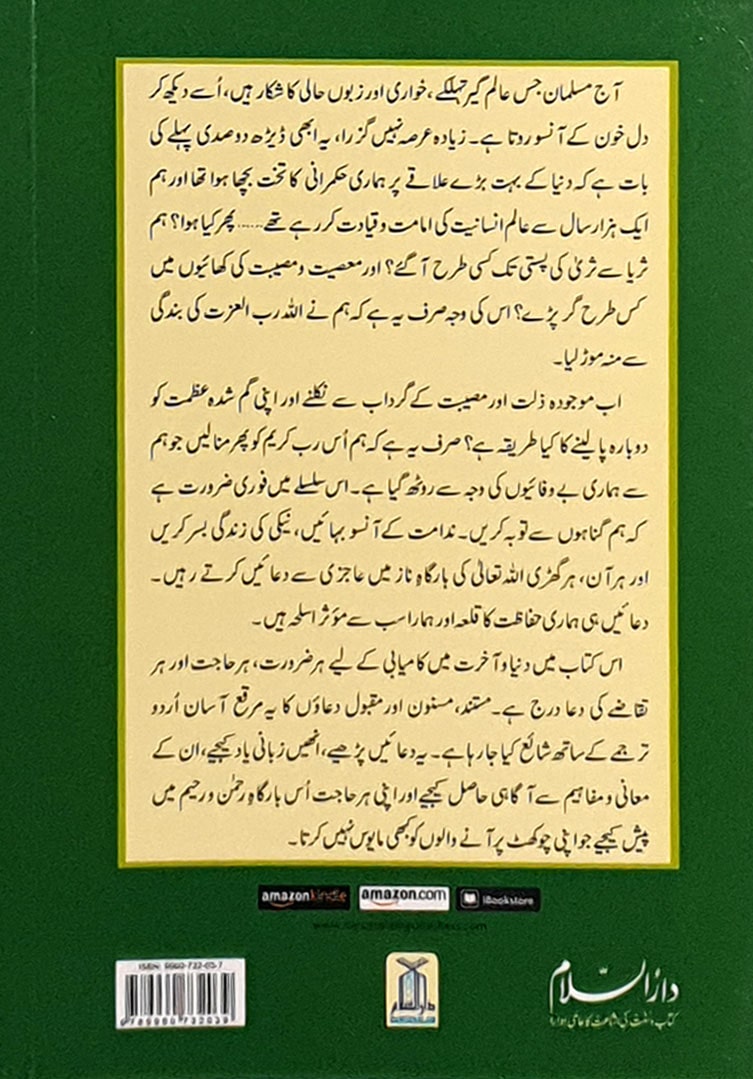 آج مسلمان جس عالم گیر تہلکے، خواری اور زبوں حالی کا شکار ہیں، اُسے دیکھ کر
دل خون کے آنسو روتا ہے۔ زیادہ عرصہ نہیں گزرا، یہ ابھی ڈیڑھ دو صدی پہلے کی
بات ہے کہ دنیا کے بہت بڑے علاقے پر ہماری حکمرانی کا تخت بچھا ہوا تھا اور ہم
ایک ہزار سال سے عالم انسانیت کی امامت و قیادت کر رہے تھے...... پھر کیا ہوا؟ ہم
ثریا سے ثریٰ کی پستی تک کسی طرح آ گئے؟ اور معصیت و مصیبت کی کھائیوں میں
کس طرح گر پڑے؟ اس کی وجہ صرف یہ ہے کہ ہم نے اللہ رب العزت کی بندگی
سے منہ موڑ لیا۔
اب موجودہ ذلت اور مصیبت کے گرداب سے نکلنے اور اپنی گم شدہ عظمت کو
دوبارہ پا لینے کا کیا طریقہ ہے؟ صرف یہ ہے کہ ہم اُس رب کریم کو پھر منا لیں جو ہم
سے ہماری بے وفائیوں کی وجہ سے روٹھ گیا ہے۔ اس سلسلے میں فوری ضرورت ہے
کہ ہم گناہوں سے توبہ کریں۔ ندامت کے آنسو بہائیں، نیکی کی زندگی بسر کریں
اور ہر آن، ہر گھڑی اللہ تعالیٰ کی بارگاہِ ناز میں عاجزی سے دعائیں کرتے رہیں۔
دعائیں ہی ہماری حفاظت کا قلعہ اور ہمارا سب سے مؤثر اسلحہ ہیں۔
اس کتاب میں دنیا و آخرت میں کامیابی کے لیے ہر ضرورت، ہر حاجت اور ہر
تقاضے کی دعا درج ہے۔ مستند، مسنون اور مقبول دعاؤں کا یہ مرقع آسان اُردو
ترجمے کے ساتھ شائع کیا جا رہا ہے۔ یہ دعائیں پڑھیے، انھیں زبانی یاد کیجیے، ان کے
معانی و مفاہیم سے آگاہی حاصل کیجیے اور اپنی ہر حاجت اُس بارگاہِ رحمٰن و رحیم میں
پیش کیجیے جو اپنی چوکھٹ پر آنے والوں کو کبھی مایوس نہیں کرتا۔
amazonkindle amazon.com iBookstore
ISBN:
دارالسلام
دارُالسّلام
کتاب و سنت کی اشاعت کا عالمی ادارہ